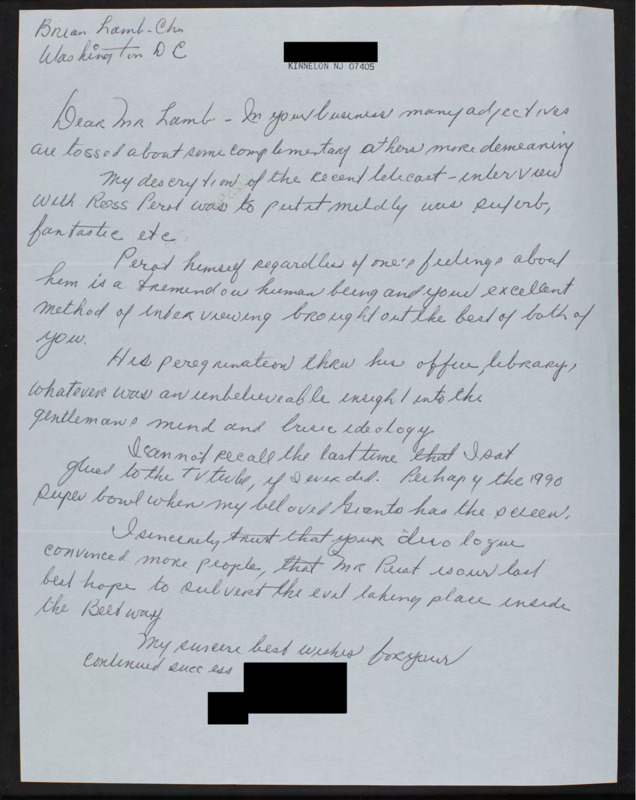 Brian Lamb - Chn
Washington D C
KINNELON NJ 07405
Dear Mr Lamb - In your business many adjectives
are tossed about some complementary others more demeaning
My description of the recent telecast - interview
with Ross Perot was to put it mildly was suburb,
fantastic etc
Perot himself regardless of one's feelings about
him is a tremendous human being and your excellent
method of interviewing brought out the best of both of
you.
His peregrination thru his office, library,
whatever was an unbelieveable insight into the
gentleman's mind and basic ideology
I cannot recall the last time that I sat
glued to the TV tube, if I ever did. Perhaps the 1990
Super bowl when my beloved Giants has the screen.
I sincerely trust that your
convinced more people, that Mr Perot is our last
best hope to subvert the evil taking place inside
the Beltway
My sincere best wishes for your
continued success